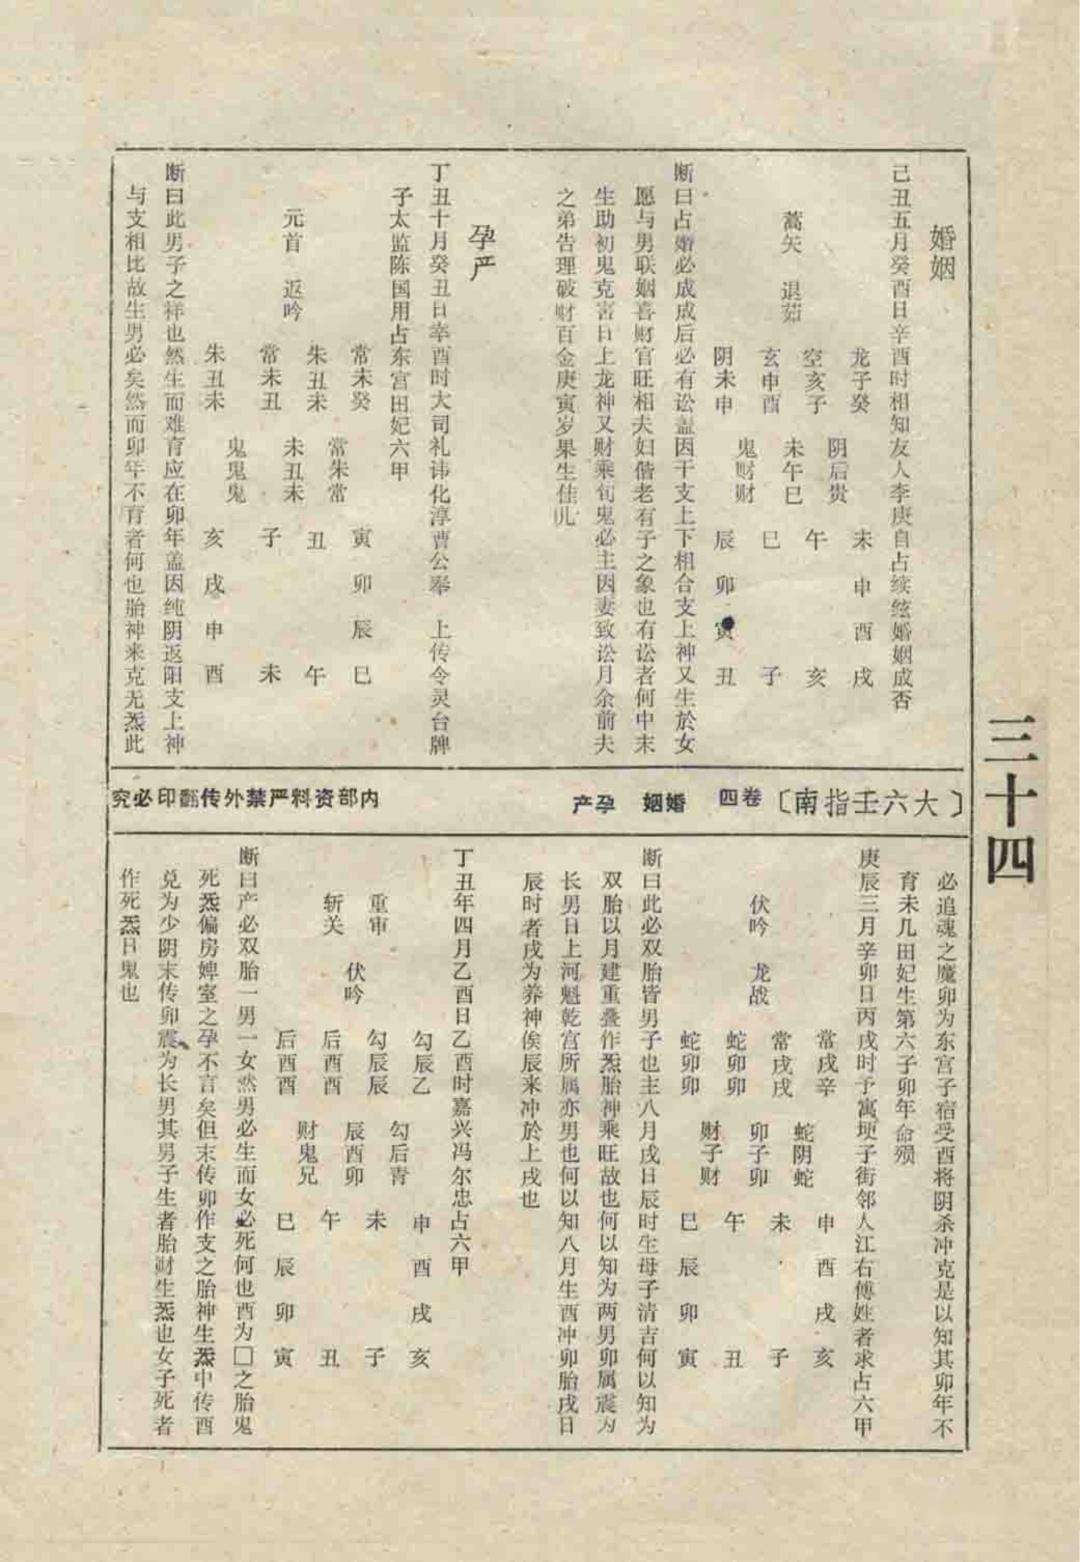 婚姻
己丑五月癸酉日辛酉时相知友人李庚自占续弦婚姻成否
蒿矢　退茹
龙子癸
空亥子
玄申酉
阴未申
阴后贵
未午巳
鬼财财
未　申　酉　戌
午　亥
巳　子
辰　卯　寅　丑
断曰占婚必成成后必有讼盖因干支上下相合支上神又生於女
愿与男联姻喜财官旺相夫妇偕老有子之象也有讼者何中末
生助初鬼克害日上龙神又财乘旬鬼必主因妻致讼月余前夫
之弟告理破财百金庚寅岁果生佳儿
孕产
丁丑十月癸丑日辛酉时大司礼讳化淳曹公奉　上传令灵台牌
子太监陈国用占东宫田妃六甲
元首　返吟
常未癸
朱丑未
常未丑
朱丑未
常朱常
未丑未
鬼鬼鬼
寅　卯　辰　巳
丑　午
子　未
亥　戌　申　酉
断曰此男子之祥也然生而难育应在卯年盖因纯阴返阳支上神
与支相比故生男必矣然而卯年不育者何也胎神来克无炁此
〔大六壬指南〕　卷四　婚姻　孕产　内部资料严禁外传翻印必究
三十四
必追魂之魔卯为东宫子宿受酉将阴杀冲克是以知其卯年不
育未几田妃生第六子卯年命殒
庚辰三月辛卯日丙戌时予寓埂子街邻人江右傅姓者求占六甲
伏吟　龙战
常戌辛
常戌戌
蛇卯卯
蛇卯卯
蛇阴蛇
卯子卯
财子财
申　酉　戌　亥
未　子
午　丑
巳　辰　卯　寅
断曰此必双胎皆男子也主八月戌日辰时生母子清吉何以知为
双胎以月建重叠作炁胎神乘旺故也何以知为两男卯属震为
长男日上河魁乾宫所属亦男也何以知八月生酉冲卯胎戌日
辰时者戌为养神俟辰来冲於上戌也
丁丑年四月乙酉日乙酉时嘉兴冯尔忠占六甲
重审　伏吟
斩关
勾辰乙
勾辰辰
后酉酉
后酉酉
勾后青
辰酉卯
财鬼兄
申　酉　戌　亥
未　子
午　丑
巳　辰　卯　寅
断曰产必双胎一男一女然男必生而女必死何也酉为□之胎鬼
死炁偏房婢室之孕不言矣但末传卯作支之胎神生炁中传酉
兑为少阴末传卯震为长男其男子生者胎财生炁也女子死者
作死炁日鬼也